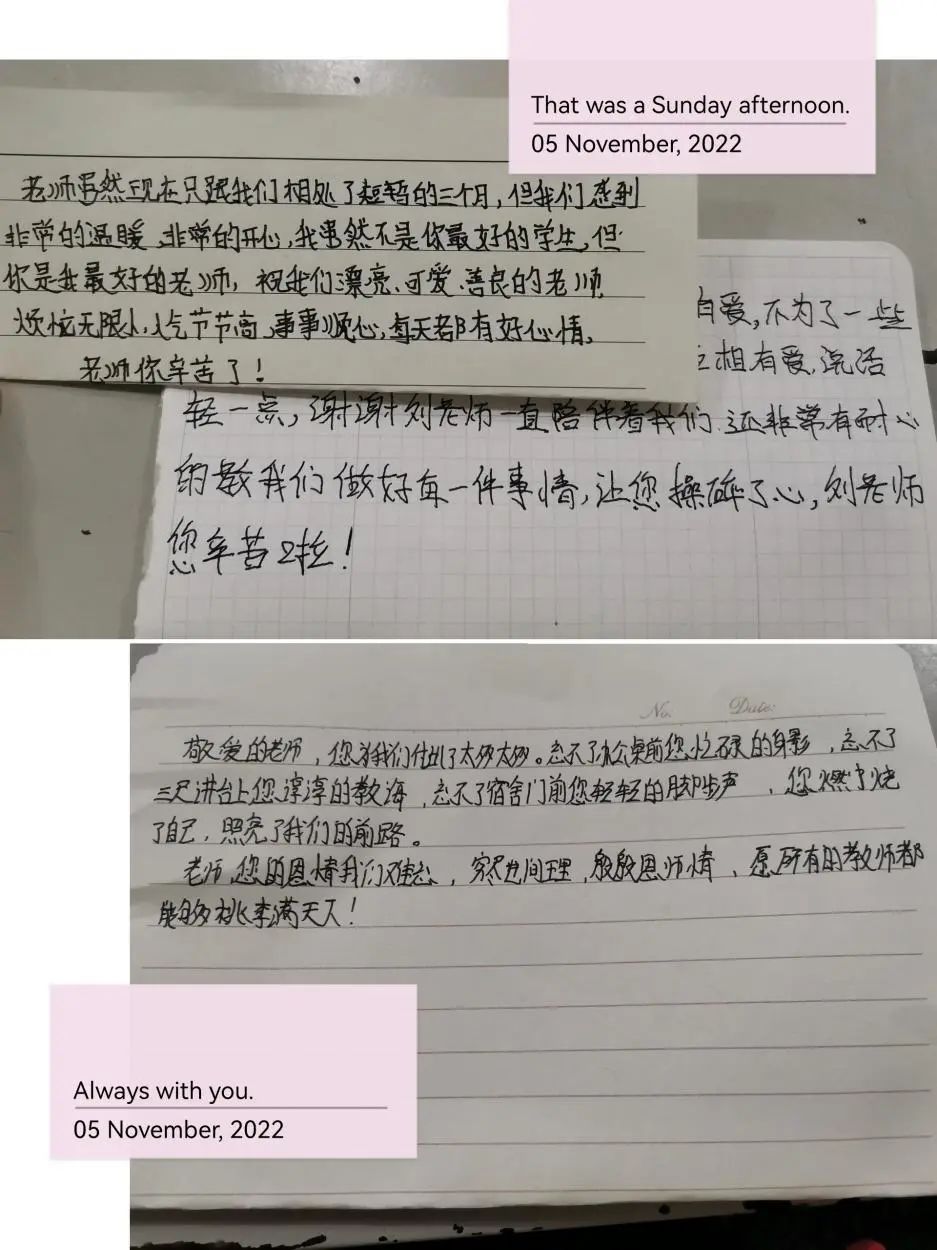 That was a Sunday afternoon.
05 November, 2022
老师虽然现在只跟我们相处了短暂的三个月，但我们感到
非常的温暖、非常的开心，我虽然不是你最好的学生，但
你是我最好的老师，祝我们漂亮、可爱、善良的老师
烦恼无限小，人气节节高、事事顺心，每天都有好心情。
老师你辛苦了！
自爱，不为了一些
互相有爱，说话
轻一点，谢谢刘老师一直陪伴着我们，还非常有耐心
的教我们做好每一件事情，让您操碎了心，刘老师
您辛苦啦！
No. Date:
敬爱的老师，您为我们付出了太多太多。忘不了办公桌前您忙碌的身影，忘不了
三尺讲台上您谆谆的教诲，忘不了宿舍门前您轻轻的脚步声，您燃烧
了自己，照亮了我们的前路。
老师，您的恩情我们难忘，穷尽世间理，殷殷恩师情，愿所有的教师都
能够桃李满天下！
Always with you.
05 November, 2022